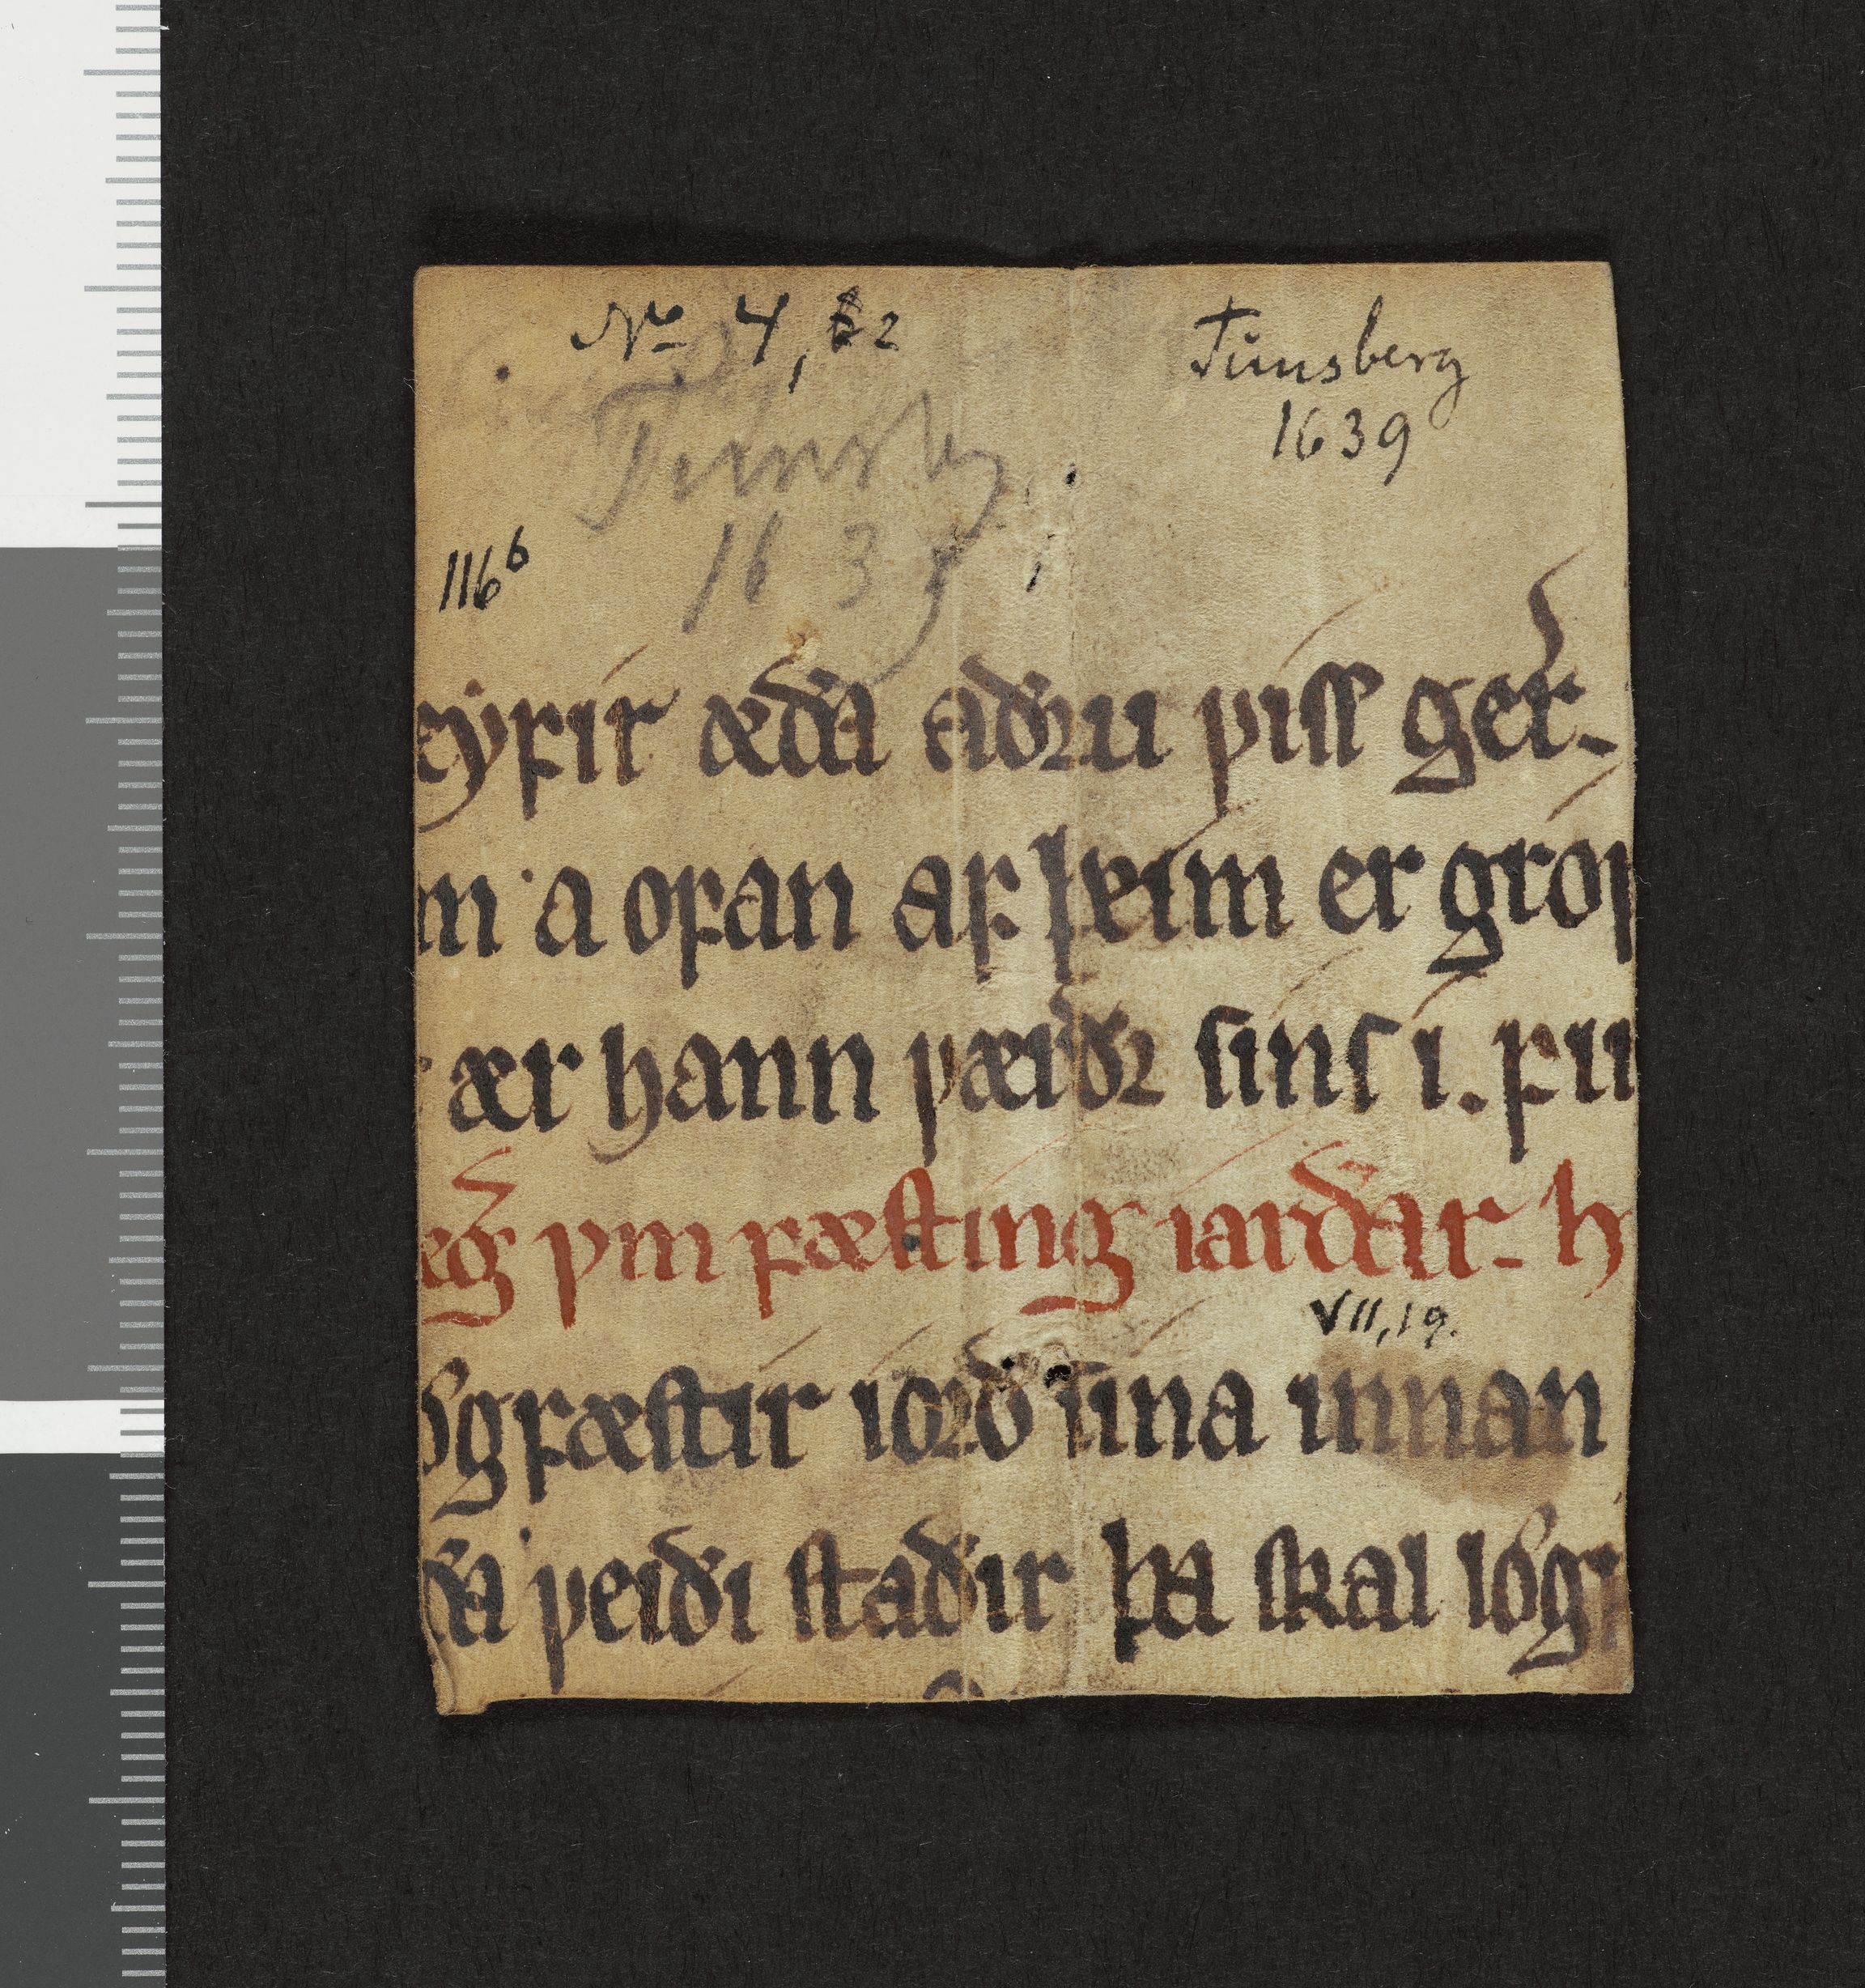 No 4, 2
Tunsberg
1639
Tunsb
1639
116b
eyꝼir æða aðꝛu ꝩiſſ ger-
m a oꝼan aꝼ þeim er groꝼ
ær hann ꝩæiðꝛ ſinſ i. ꝼu
eg ꝩm ꝼæſting iarðar- h
VII, 19.
ogꝼæſtir ioꝛð ſina innan
ða ꝩeiði ſtaðir þa ſkal logr